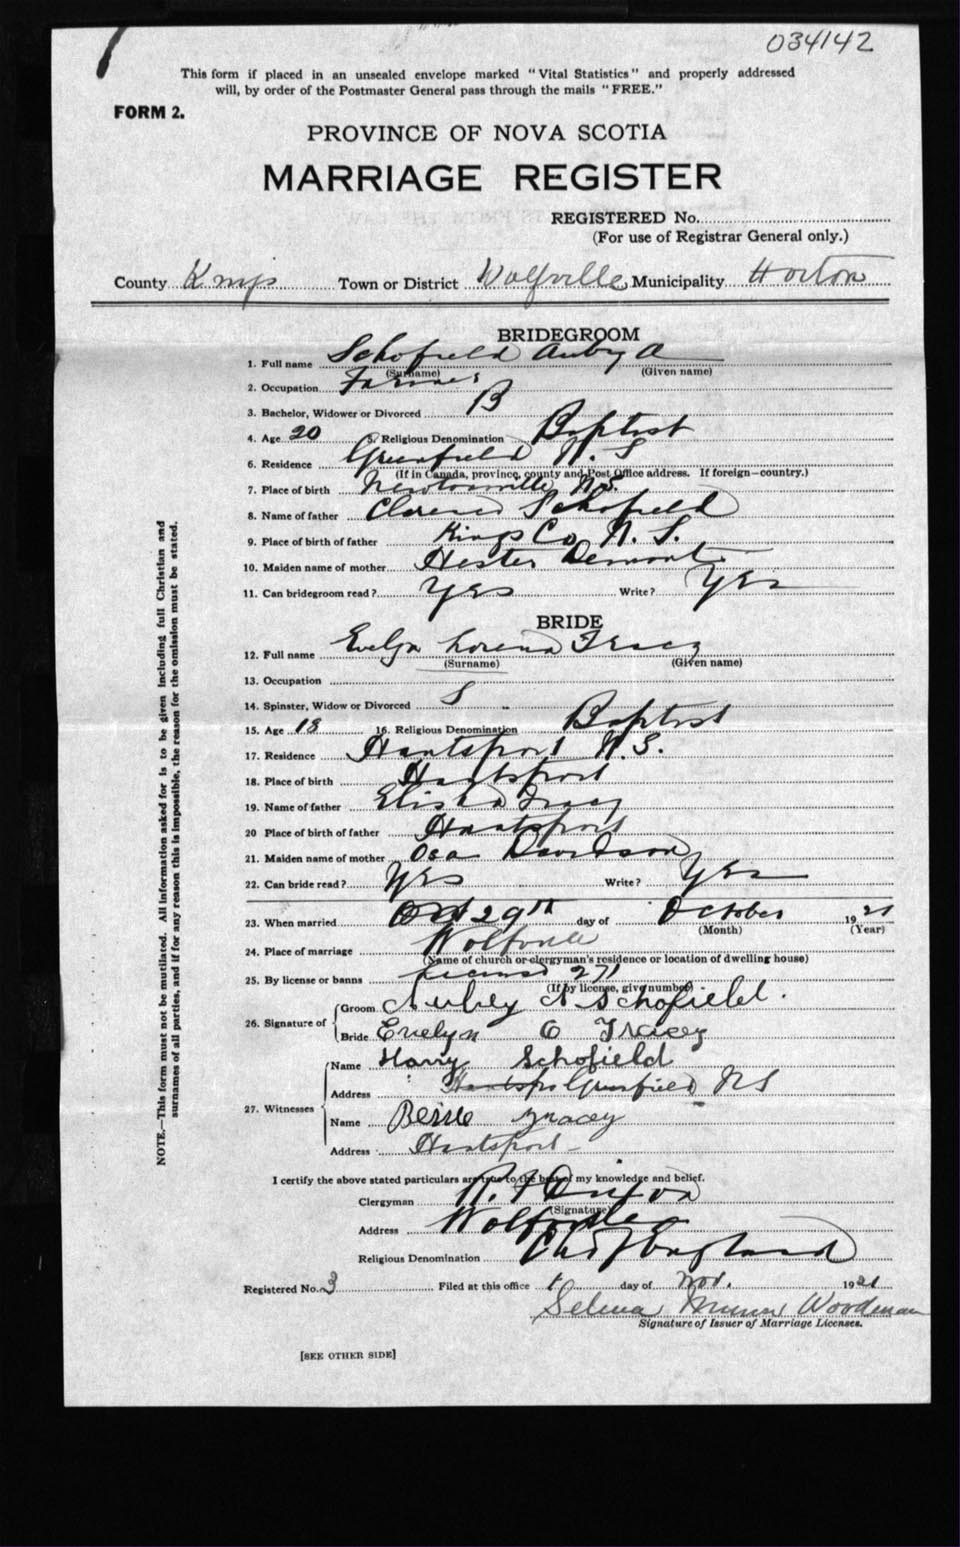 034142
This form if placed in an unsealed envelope marked "Vital Statistics" and properly addressed
will, by order of the Postmaster General pass through the mails "FREE."
FORM 2.
PROVINCE OF NOVA SCOTIA
MARRIAGE REGISTER
REGISTERED No.
(For use of Registrar General only.)
County Kings Town or District Wolfville Municipality Horton
BRIDEGROOM
1. Full name Schofield Aubry A
(Surname) (Given name)
2. Occupation Farmer
3. Bachelor, Widower or Divorced B
4. Age 20 5. Religious Denomination Baptist
6. Residence Greenfield N. S
(If in Canada, province, county and Post Office address. If foreign—country.)
7. Place of birth Newtonville N.S.
8. Name of father Clarence Schofield
9. Place of birth of father Kings Co N. S.
10. Maiden name of mother Hester Demont
11. Can bridegroom read? Yes Write? Yes
BRIDE
12. Full name Evelyn Lorena Tracy
(Surname) (Given name)
13. Occupation
14. Spinster, Widow or Divorced S
15. Age 18 16. Religious Denomination Baptist
17. Residence Hantsport N. S.
18. Place of birth Hantsport
19. Name of father Elisha Tracy
20 Place of birth of father Hantsport
21. Maiden name of mother Osa Davidson
22. Can bride read? Yes Write? Yes
23. When married 29th day of October 1921
(Month) (Year)
24. Place of marriage Wolfville
(Name of church or clergyman's residence or location of dwelling house)
25. By license or banns License 271
(If by license, give number)
26. Signature of Groom Aubey A Schofield.
Bride Evelyn O Tracey
27. Witnesses Name Harry Schofield
Address Hantspo Greenfield NS
Name Bessie Tracey
Address Hantsport
I certify the above stated particulars are true to the best of my knowledge and belief.
Clergyman R. F Dixon
(Signature)
Address Wolfville
Religious Denomination Ch of England
Registered No. 3 Filed at this office 1 day of Nov. 1921
Selina Woodman
Signature of Issuer of Marriage Licenses.
[SEE OTHER SIDE]
NOTE.—This form must not be mutilated. All information asked for is to be given including full Christian and
surnames of all parties, and if for any reason this is impossible, the reason for the omission must be stated.